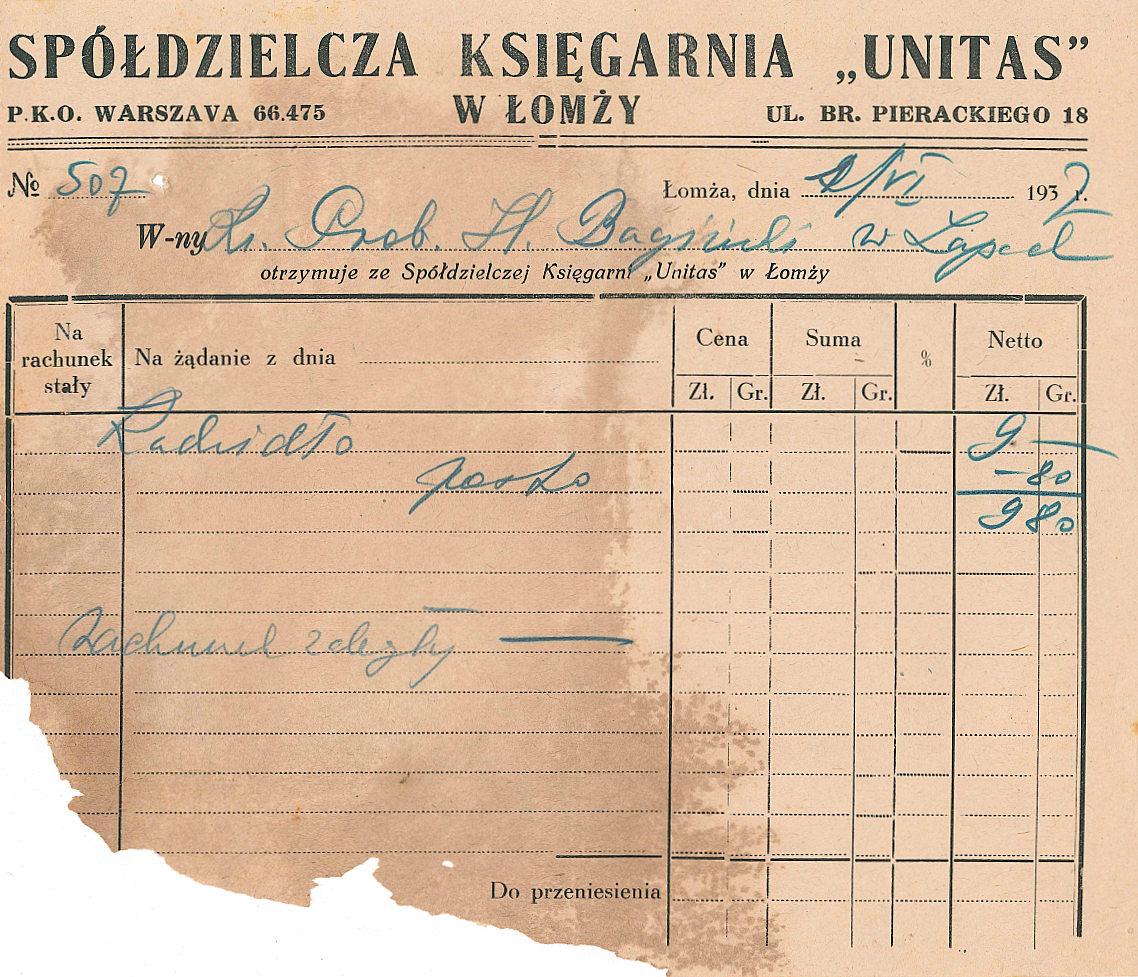 SPÓŁDZIELCZA KSIĘGARNIA „UNITAS”
P.K.O. WARSZAWA 66.475 W ŁOMŻY UL. BR. PIERACKIEGO 18
№ 507 Łomża, dnia 2/VI 1937 r.
W-ny Ks. Prob. H. Bagiński w
otrzymuje ze Spółdzielczej Księgarni „Unitas” w Łomży
Na rachunek stały Na żądanie z dnia Cena Suma % Netto
Zł. Gr. Zł. Gr. Zł. Gr.
Kadzidło 9 —
porto — 80
9 80
Rachunek zaległy —
Do przeniesienia